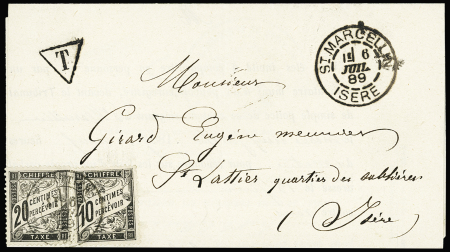 T
ST MARCELLIN
1E 6
JUIL.
89
ISÈRE
Monsieur
Girard Eugène meunier
St Lattier quartier des sablières
(Isère)
CHIFFRE
20 CENTIMES À PERCEVOIR
TAXE
CHIFFRE
10 CENTIMES À PERCEVOIR
TAXE